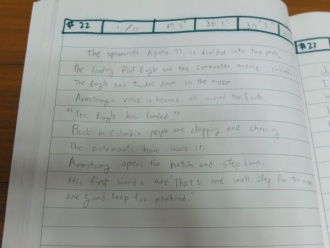 # 22 / 11
The spacecraft, Apollo 11, is divided into two parts,
the landing Pod Eagle and the command module, Columbia
The Eagle has touched down on the moon
Armstrong's voice is heard all around the Earth
"The Eagle has landed"
Back in Columbia people are clapping and cheering
The astronauts have made it
Armstrong opens the hatch and steps down.
His first words are "That's one small step for the man
one giant leap for mankind."
#21